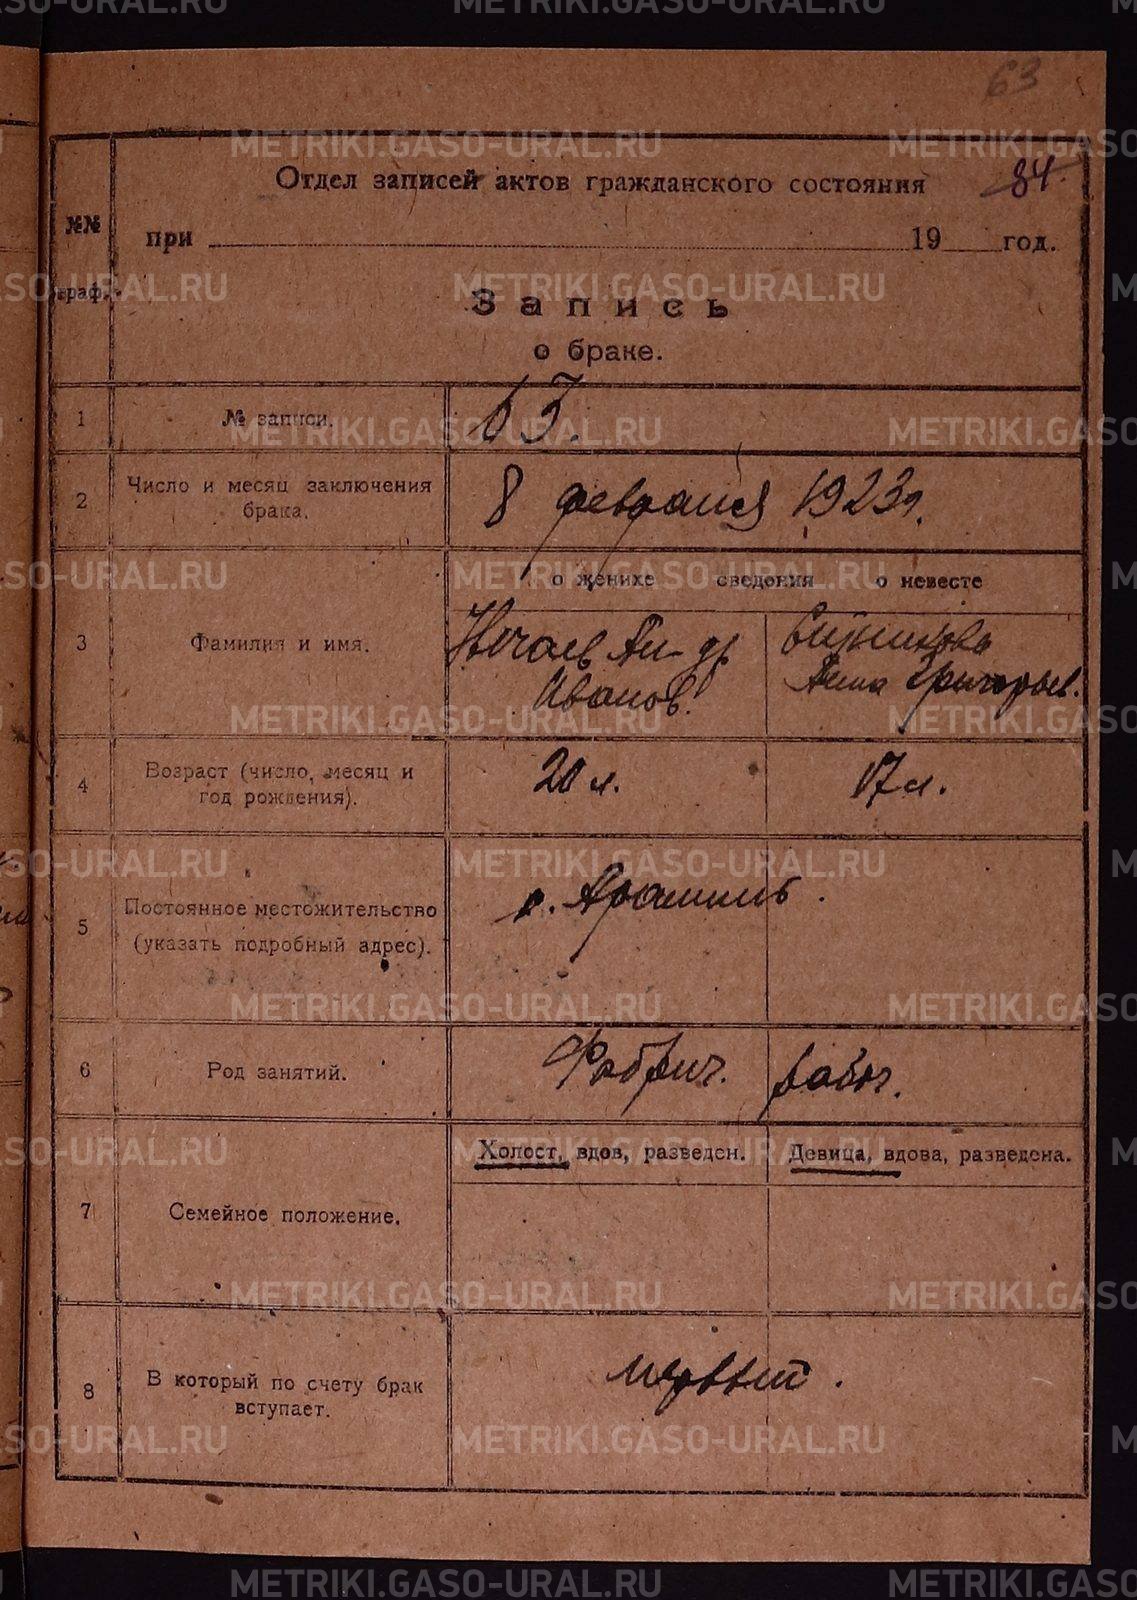 63
84.
Отдел записей актов гражданского состояния
№№
граф.
при 19 год.
Запись
о браке.
1 № записи. 63.
2 Число и месяц заключения брака. 8 февраля 1923 г.
о женихе сведения о невесте
3 Фамилия и имя.
Ан-др
Иванов.
Анна Григорьев.
4 Возраст (число, месяц и год рождения). 20 л. 17 л.
5 Постоянное местожительство (указать подробный адрес). с. Арамиль.
6 Род занятий. Фабрич. рабоч.
Холост, вдов, разведен. Девица, вдова, разведена.
7 Семейное положение.
8 В который по счету брак вступает. первый.
METRIKI.GASO-URAL.RU